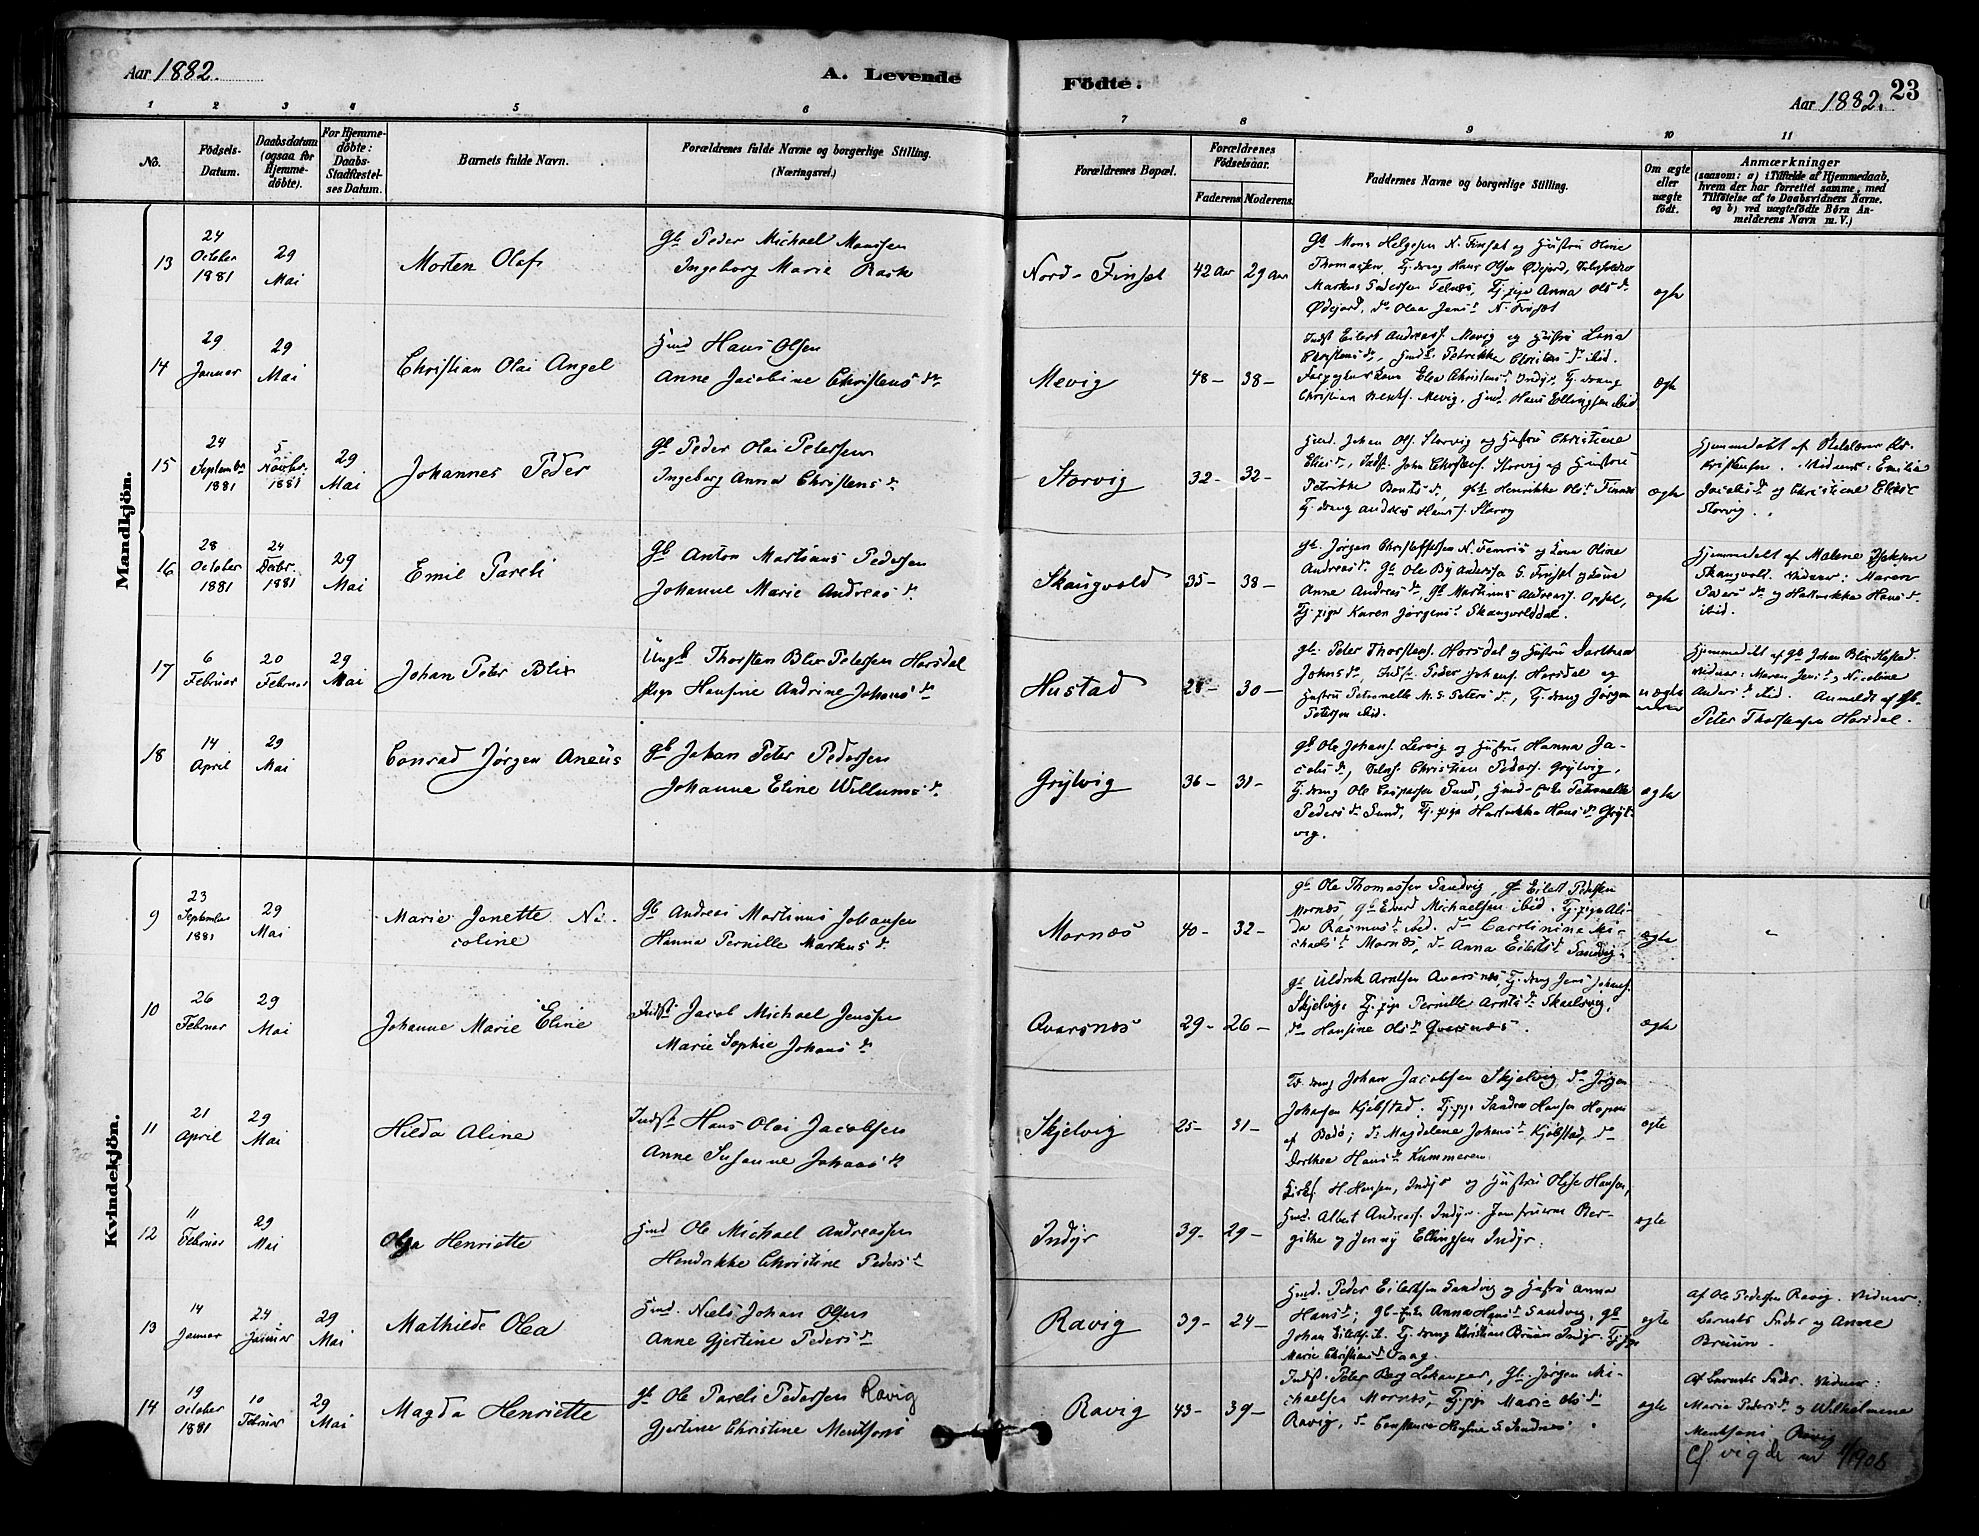 Aar 1882.
A. Levende
Födte.
23
Aar 1882.
1 2 3 4 5 6 7 8 9 10 11
No.
Födsels-
Datum.
Daabsdatum
(ogsaa for
Hjemme-
döbte).
For Hjemme-
döbte:
Daabs-
Stadfæstel-
ses Datum.
Barnets fulde Navn.
Forældrenes fulde Navne og borgerlige Stilling.
(Næringsvei.)
Forældrenes Bopæl.
Forældrenes
Födselsaar.
Faderens Moderens.
Faddernes Navne og borgerlige Stilling.
Om ægte
eller
uægte
födt.
Anmærkninger
(saasom: a) i Tilfælde af Hjemmedaab,
hvem der har forrettet samme, med
Tilföielse af to Daabsvidners Navne.
og b) ved uægtefödte Börn An-
melderens Navn m. V.)
Mandkjön.
13
24
October
1881
29
Mai
Morten Olaf
Gb Peder Michael Monssen
Ingeborg Marie Rask
Nord-Finset
42 Aar 29 Aar
Gb Mons Helgesen N. Finset og Hustru Oline
Thomassen, Tj. dreng Hans Olsen Ødejord,
Markus Pedersen Telnæs, Tj. pige Anna Olsdr
Ødejord, do Olea Jensdr N. Finset
ægte
14
29
Januar
29
Mai
Christian Olai Angel
Hmd Hans Olsen
Anne Jacobine Christensdr
Mevig
48 - 38 -
Indst Eilert Andreass. Mevig og Hustru Lina
Christensdr, Petrikke Christensdr ibid.
Elen Christensdr Indyr, Tj. dreng
Christian Bents. Mevig, Hmd Hans Ellingsen ibid
ægte
15
24
September
1881
5
Novbr.
1881
29
Mai
Johannes Peder
Gb Peder Olai Petersen
Ingeborg Anna Christensdr
Storvig
32 - 32 -
Hmd. Johan Ols. Storvig og Hustru Christiane
Eliasdr, Indst. John Christens. Storvig og Hustru
Petrikke Bentsdr, Henrikke Olsdr Finnes
Tj. dreng Andreas Hans s. Storvig
ægte
Hjemmedøbt af
Kristensen. Vidner: Emilie
Jacobsdr og Christiane Eliasdr
Storvig.
16
28
October
1881
24
Decbr.
1881
29
Mai
Emil Pareli
Gb Anton Martinus Pedersen
Johanne Marie Andreasdr
Skaugvold
35 - 38 -
Gb Jørgen Christoffersen N. Femris og Kona Oline
Andreasdr Gb Ole By Andersen S. Finset og Kona
Anne Andreasdr, Gb Martinus Andreass. Opsal,
Tj. pige Karen Jørgensdr Skaugvolddal.
ægte
Hjemmedøbt af Malene
Skaugvold. Vidner: Maren
Pedersdr og Hallvikka Hansdr
ibid.
17
6
Februar
20
Februar
29
Mai
Johan Peter Blix
Ungk Thorsten Blix Petersen Horsdal
Pige Hansine Andrine Johansdr
Hustad
28 - 30 -
Gb. Peter Thorstens. Horsdal og Hustru Dorthea
Johnsdr, Indst. Peder Johans. Horsdal og
Hustru Petronelle M. S. Petersdr, Tj. dreng Jørgen
Petersen ibid.
uægte
Hjemmedøbt af Gb Johan Blix Hustad.
Vidner: Maren Jensdr og Nicoline
Andersdr ibid. Anmeldt af Gb
Peter Thorstensen Horsdal.
18
14
April
29
Mai
Conrad Jørgen Aneus
Gb Johan Peter Pedersen
Johanne Eline Willumsdr
Grytvig
36 - 31 -
Gb Ole Johans. Lervig og Hustru Hanna Ja-
cobsdr, Christian Peders. Grytvig,
Tj. dreng Ole Caspersen Sund, Hmd-Enke Petronelle
Pedersdr Sund, Tj. pige Hartvikka Hansdr Gryt-
vig.
ægte
Kvindekjön.
9
23
September
1881
29
Mai
Marie Jonette Ni-
coline
Gb Andreas Martinus Johansen
Hanna Pernille Markusdr
Mornæs
40 - 32 -
Gb Ole Thomassen Sandvig, Gb Eilert Petersen
Mornæs, Gb Edvard Michaelsen ibid. Tj. pige Ali-
da Rasmusdr ibid. do Carolinina Mi-
chaelsdr Mornæs, do Anna Eilertsdr Sandvig.
ægte
"
10
26
Februar
29
Mai
Johanne Marie Eline
Indst Jacob Michael Jenssen
Marie Sophie Johansdr
Qvarsnæs
29 - 26 -
Gb Uldrik Arntsen Qvarsnæs, Tj. dreng Jens Johans.
Skjelvig, Tj. pige Pernille Arntsdr Skaalsvig,
do Hansine Olsdr Qvarsnæs.
ægte
11
21
April
29
Mai
Hilda Aline
Indst Hans Olai Jacobsen
Anne Susanne Johansdr
Skjelvig
25 - 31 -
Tj. dreng Johan Jacobsen Skjelvig, do Jørgen
Johansen Kjøbstad; Tj. pige Sandra Hansen
af Bodø; do Magdalene Johansdr Kjøbstad, do
Dorthea Hansdr Kummeren
ægte
12
11
Februar
29
Mai
Olga Henriette
Hmd Ole Michael Andreassen
Hendrikke Christine Pedersdr
Indyr
39 - 29 -
Kirkes. H. Hansen, Indyr og Hustru Olise Hansen,
Hmd. Albert Andreass. Indyr. Jomfruerne Ber-
githe og Jenny Ellingsen Indyr.
ægte
13
14
Januar
24
Januar
29
Mai
Mathilde Olea
Hmd. Niels Johan Olsen
Anne Gjertine Pedersdr
Ravig
39 - 24 -
Hmd. Peder Eilertsen Sandvig og Hustru Anna
Hansdr; Gb. Enke Anna Hansdr Sandvig, Gb
Johan Eilerts. ib. Tj. dreng Christian Bruun Indyr. Tj. pige
Marie Christiansdr Vaag.
ægte
Af Ole Pedersen Ravig. Vidner:
Barnets Fader og Anne
Bruun.
14
19
October
1881
10
Februar
29
Mai
Magda Henriette
Gb Ole Pareli Pedersen Ravig
Gjertine Christine Mentsons
Ravig
43 - 39 -
Indst. Peter Berg Lekanger, Gb. Jørgen Mi-
chaelsen Mornæs, Tj. pige Marie Olsdr
Ravig, do Constance Sandnes.
ægte
Af Barnets Fader. Vidner:
Marie Pedersdr og Wilhelmine
Mentsens Ravig
Cf. vigde nr 1/1908